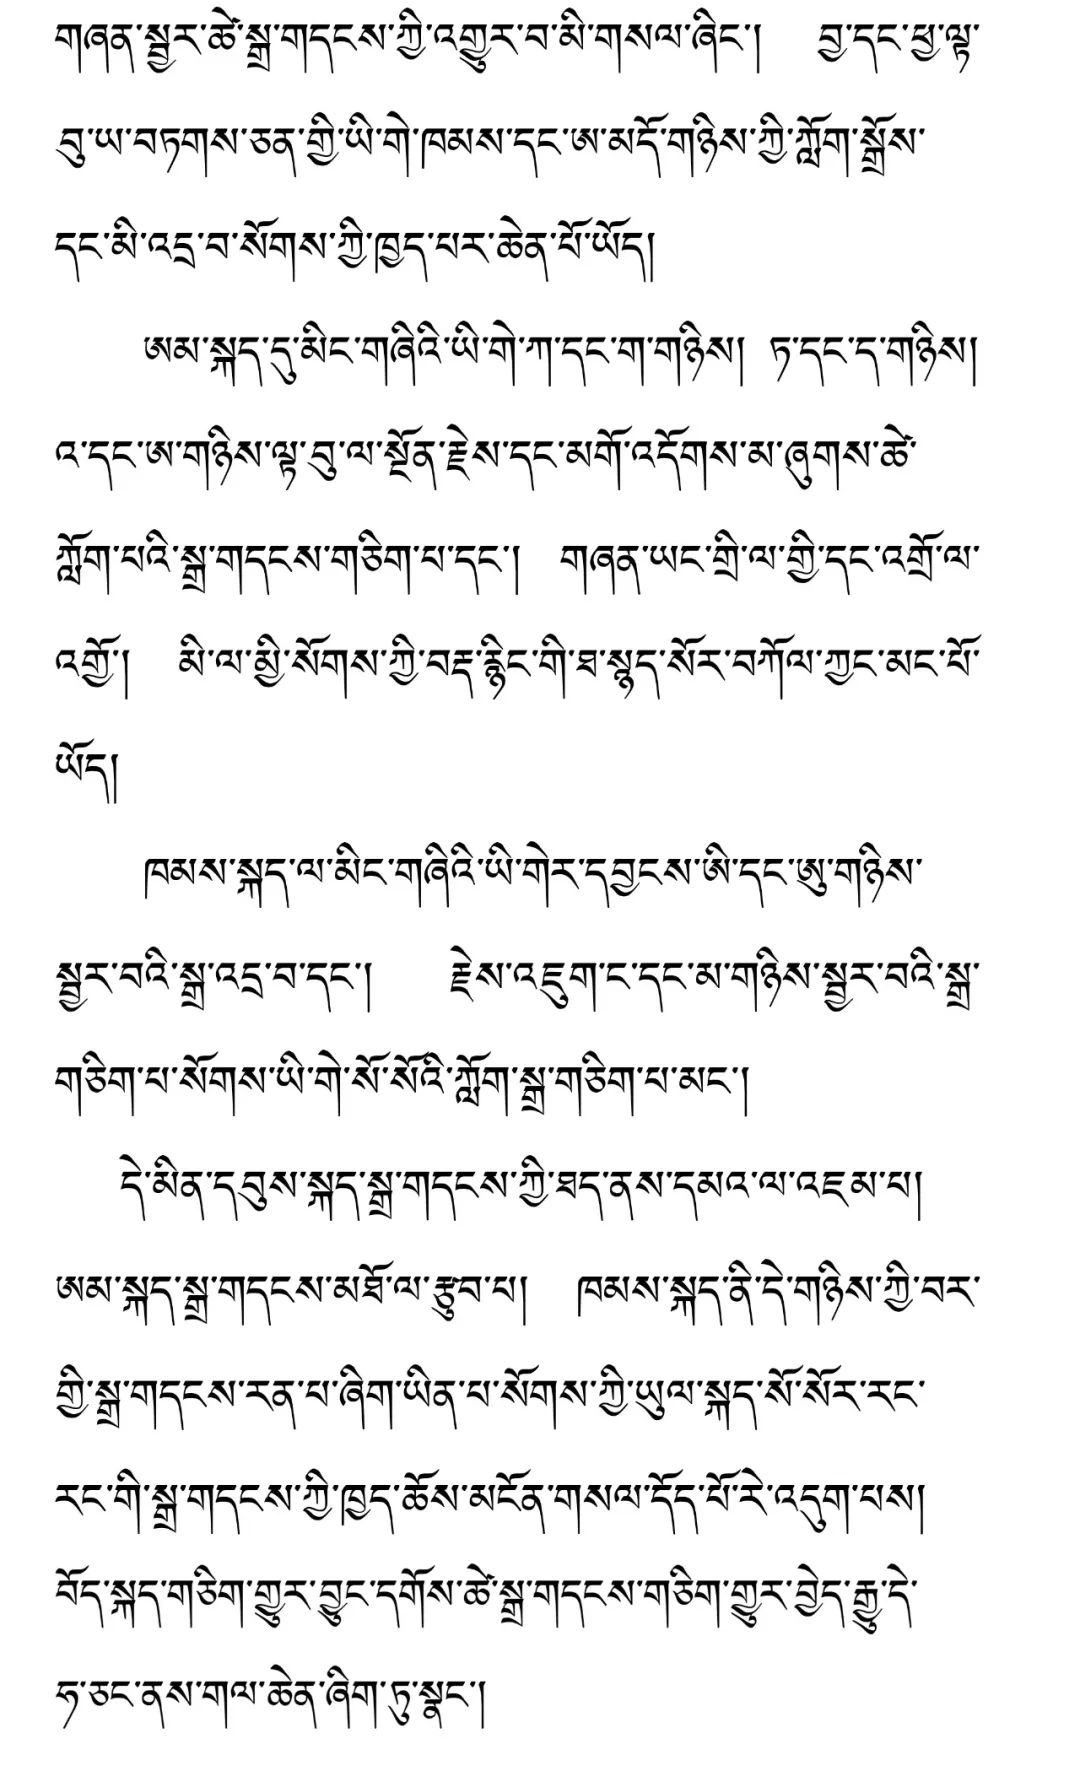 གཞན་སྦྱར་ཚེ་སྒྲ་གདངས་ཀྱི་འགྱུར་བ་མི་གསལ་ཞིང་། བྱ་དང་ཕྱ་ལྟ་
བུ་ཡ་བཏགས་ཅན་གྱི་ཡི་གེ་ཁམས་དང་ཨ་མདོ་གཉིས་ཀྱི་ཀློག་སྒྲོས་
དང་མི་འདྲ་བ་སོགས་ཀྱི་ཁྱད་པར་ཆེན་པོ་ཡོད།
ཨམ་སྐད་དུ་མིང་གཞིའི་ཡི་གེ་ཀ་དང་ག་གཉིས། ཏ་དང་ད་གཉིས།
འ་དང་ཨ་གཉིས་ལྟ་བུ་ལ་སྔོན་རྗེས་དང་མགོ་འདོགས་མ་ཞུགས་ཚེ་
ཀློག་པའི་སྒྲ་གདངས་གཅིག་པ་དང་། གཞན་ཡང་གྲི་ལ་གྱི་དང་འགྲོ་ལ་
འགྱོ། མི་ལ་མྱི་སོགས་ཀྱི་བརྡ་རྙིང་གི་ཐ་སྙད་སོར་བཀོལ་ཀྱང་མང་པོ་
ཡོད།
ཁམས་སྐད་ལ་མིང་གཞིའི་ཡི་གེར་དབྱངས་ཨི་དང་ཨུ་གཉིས་
སྦྱར་བའི་སྒྲ་འདྲ་བ་དང་། རྗེས་འཇུག་ང་དང་མ་གཉིས་སྦྱར་བའི་སྒྲ་
གཅིག་པ་སོགས་ཡི་གེ་སོ་སོའི་ཀློག་སྒྲ་གཅིག་པ་མང་།
དེ་མིན་དབུས་སྐད་སྒྲ་གདངས་ཀྱི་ཐད་ནས་དམའ་ལ་འཇམ་པ།
ཨམ་སྐད་སྒྲ་གདངས་མཐོ་ལ་རྩུབ་པ། ཁམས་སྐད་ནི་དེ་གཉིས་ཀྱི་བར་
གྱི་སྒྲ་གདངས་རན་པ་ཞིག་ཡིན་པ་སོགས་ཀྱི་ཡུལ་སྐད་སོ་སོར་རང་
རང་གི་སྒྲ་གདངས་ཀྱི་ཁྱད་ཆོས་མངོན་གསལ་དོད་པོ་རེ་འདུག་པས།
བོད་སྐད་གཅིག་གྱུར་བྱུང་དགོས་ཚེ་སྒྲ་གདངས་གཅིག་གྱུར་བྱེད་རྒྱུ་དེ་
ཧ་ཅང་ནས་གལ་ཆེན་ཞིག་ཏུ་སྣང་།